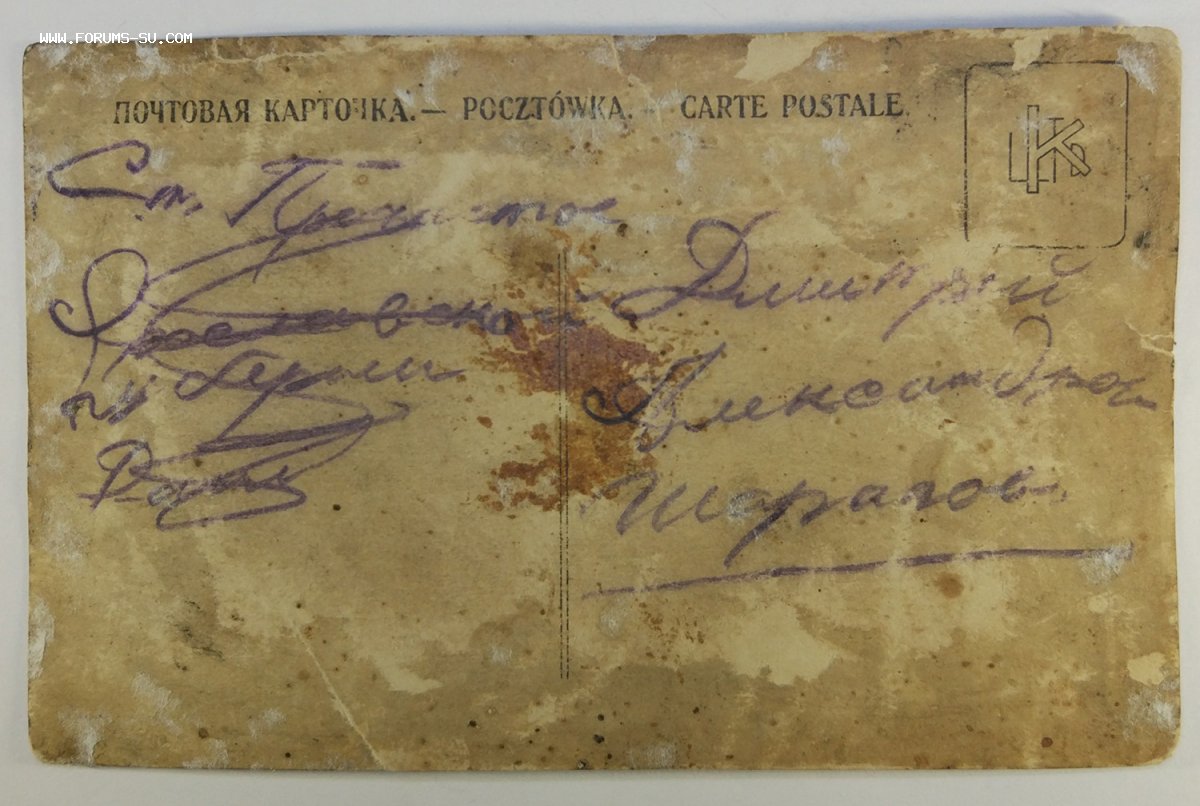 WWW.FORUMS-SU.COM
ПОЧТОВАЯ КАРТОЧКА.— POCZTÓWKA.— CARTE POSTALE.
Ст. Пречистое
Ярославской
губернии
Дмитрий
Александров
Шарагов